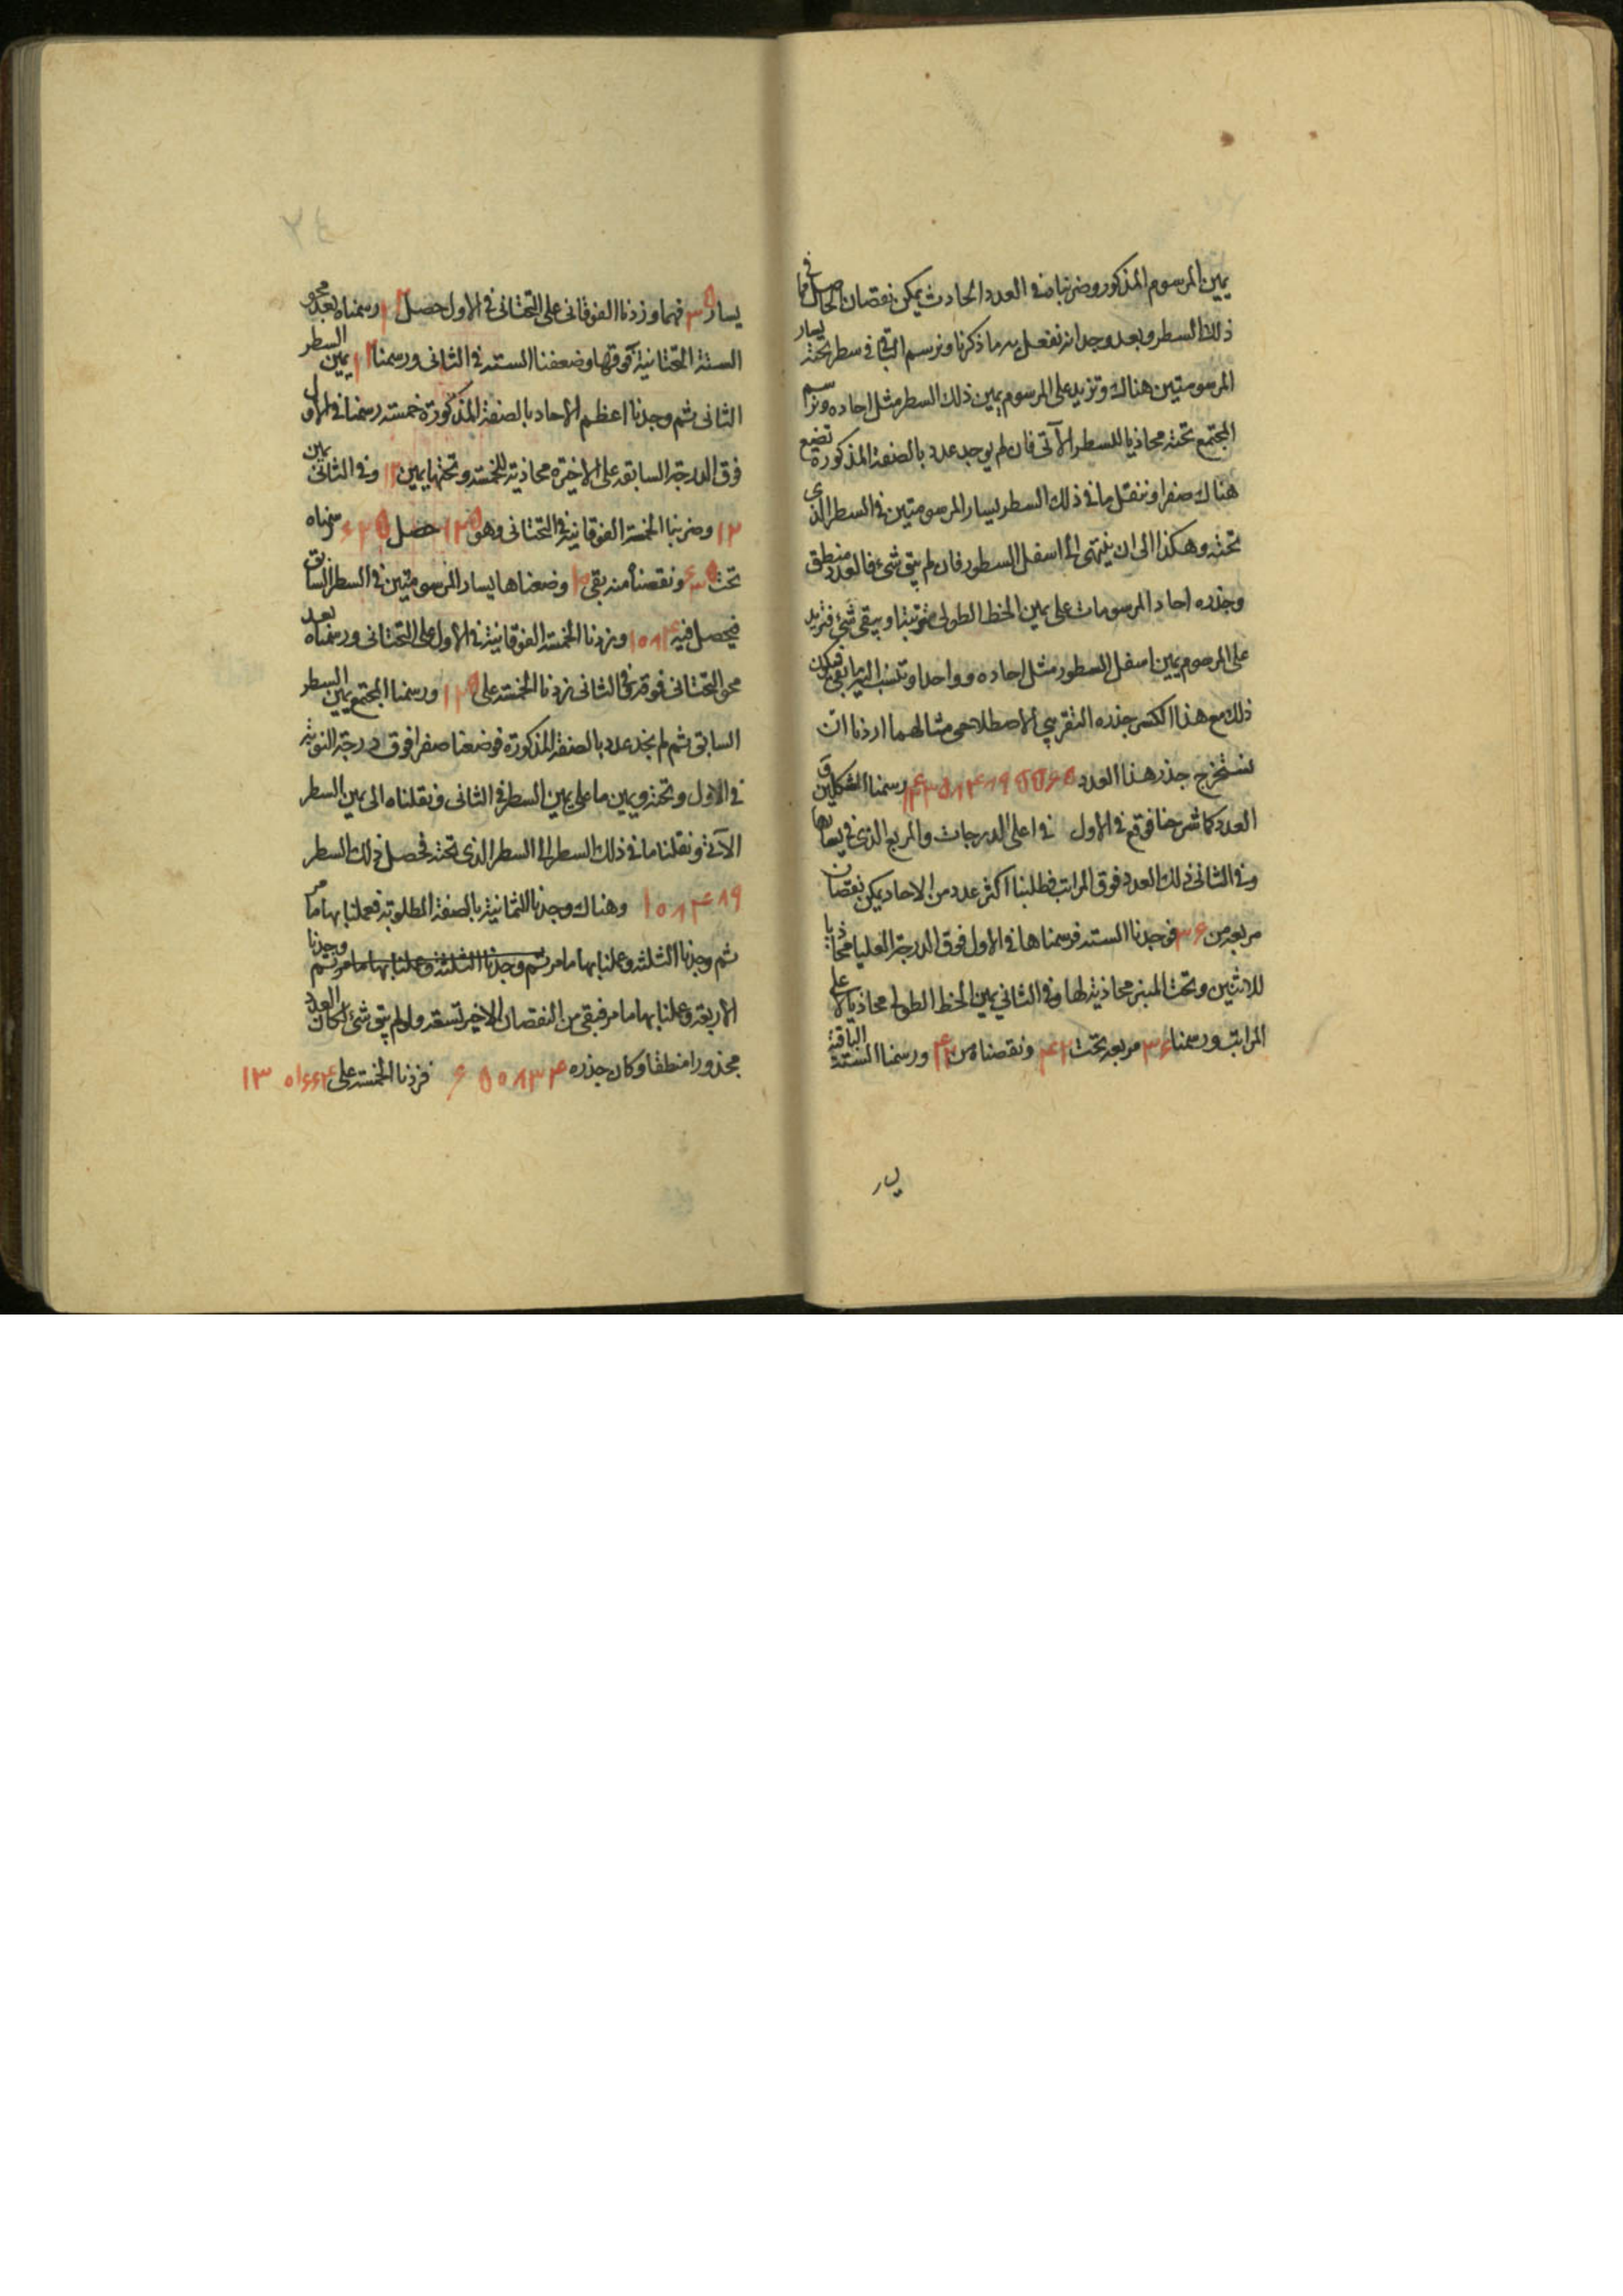 يمين المرسوم المذكور وضربناه في العدد الحادث يمكن نقصان الحاصل مما في
ذلك السطر وبعد وجدانه نفعل به ما ذكرنا ونرسم الباقي في سطر تحته يسار
المرسومتين هناك ونزيد على المرسوم يمين ذلك السطر مثل احاده ونرسم
المجتمع تحته محاذيا للسطر الآتي فان لم يوجد عدد بالصفة المذكورة نضع
هناك صفرا وننقل ما في ذلك السطر ليسار المرسومتين في السطر الذي
تحته وهكذا الى ان ينتهى الى اسفل السطور فان لم يبق شئ فالعدد منطق
وجذره احاد المرسومات على يمين الخط الطولى متوتبتا او يبقى شئ فنزيد
على المرسوم يمين اسفل السطور مثل احاده وواحدا وتنسب اليه ما بقى فيكون
ذلك مع هذا الكسر جذره التقريبي الاصطلاحى مثالهما اردنا ان
نستخرج جذر هذا العدد رسمنا الشكلين و
العدد كما شرحنا فوقع في الاول في اعلى الدرجات والمربع الذى في يسارها
وفي الثانى ذلك العدد فوق المراتب فطلبنا اكثر عدد من الاحاد يمكن نقصان
مربعه من فوجدنا الستة فرسمناها في الاول فوق الدرجة العليا محاذيا
للاثنين وتحت المبنر محاذية لها وفي الثاني يمين الخط الطولى محاذيا لاعلى
المراتب ورسمنا ٣٦ مربعه تحت ٤٢ ونقصناه من ٤٢ ورسمنا الستة الباقية
يسار
٢٤
يسار ٣٥ فيهما وزدنا الفوقانى على التحتانى في الاول حصل ١٢ رسمناه بعد محو
الستة التحتانية فوقها وضعفنا الستة في الثانى ورسمنا ١٢ يمين السطر
الثانى ثم وجدنا اعظم الاحاد بالصفة المذكورة خمسة رسمنا في الاول
فوق الدرجة السابقة على الاخيرة محاذية للخمسة وتحتها يمين ١٢ وفي الثانى يمين
١٢ وضربنا الخمسة الفوقانية في التحتانى وهو ١٢٥ حصل ٦٢٥ رسمناه
تحت ٦٣٥ ونقصنا منه بقى ١٠ وضعناها يسار المرسومتين في السطر السابق
فيحصل فيه ١٠٨٤ وزدنا الخمسة الفوقانية في الاول على التحتانى ورسمناه بعد
محو التحتانى فوقه وفي الثانى زدنا الخمسة على ١٢٥ ورسمنا المجتمع يمين السطر
السابق ثم لم نجد عدد بالصفة المذكورة فوضعنا صفرا فوق درجة النوبة
في الاول وتحته ويمين ما على يمين السطر في الثانى ونقلناه الى يمين السطر
الآتى ونقلنا ما في ذلك السطر الى السطر الذى تحته فحصل في ذلك السطر
١٠٨٤٨٩ وهناك وجدنا الثمانية بالصفة المطلوبة فعملنا بها ما مر
ثم وجدنا الثلثة وعملنا بها ما مر ثم وجدنا الثلثة وعملنا بها ما مر ثم وجدنا
الاربعة وعملنا بها ما مر فبقى من النقصان الاخير تسعة ولو لم يبق شئ لكان العدد
مجذورا منطقا وكان جذره ٦٥٠٨٣٤ فزدنا الخمسة على ١٣٠١٦٦٤